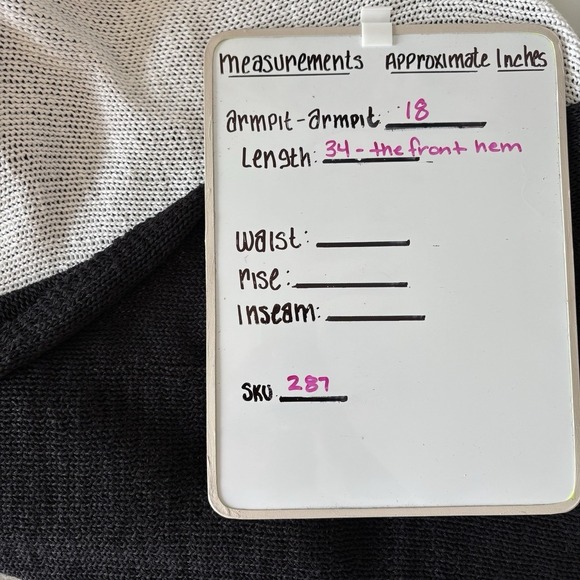 measurements Approximate Inches
armpit-armpit 18
Length: 34 - the front hem
waist:
rise:
Inseam:
SKU 287